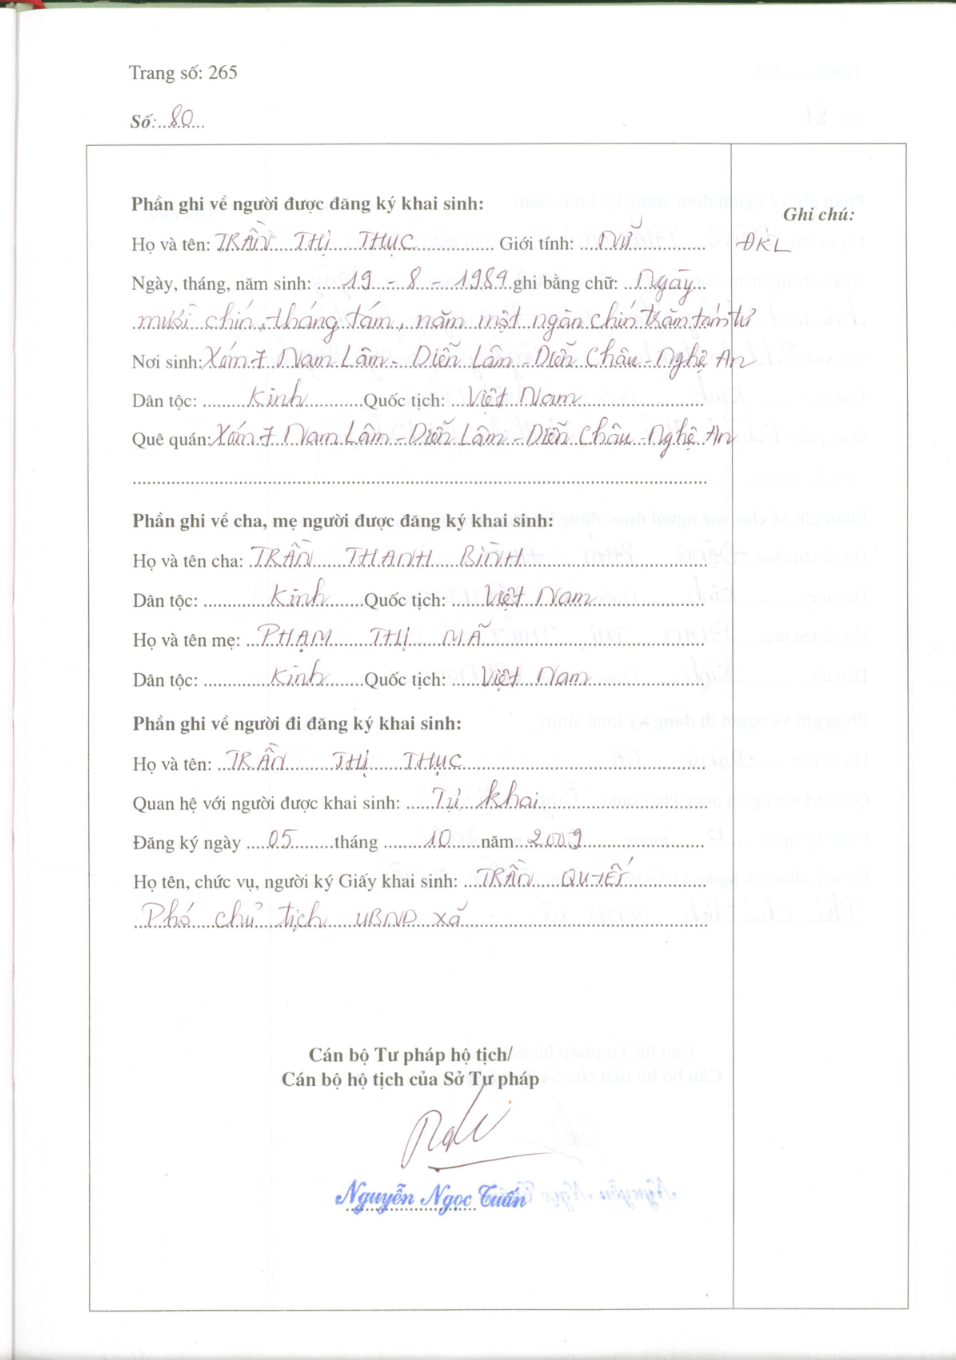 Trang số: 265
Số: 80
Phần ghi về người được đăng ký khai sinh:
Ghi chú:
Họ và tên: TRẦN THỊ THỤC Giới tính: NỮ
ĐKL
Ngày, tháng, năm sinh: 19 - 8 - 1984 ghi bằng chữ: Ngày
mười chín, tháng tám, năm một ngàn chín trăm tám tư
Nơi sinh: Xóm 7 Nam Lâm - Diễn Lâm - Diễn Châu - Nghệ An
Dân tộc: Kinh Quốc tịch: Việt Nam
Quê quán: Xóm 7 Nam Lâm - Diễn Lâm - Diễn Châu - Nghệ An
Phần ghi về cha, mẹ người được đăng ký khai sinh:
Họ và tên cha: TRẦN THANH BÌNH
Dân tộc: Kinh Quốc tịch: Việt Nam
Họ và tên mẹ: PHẠM THỊ MÃ
Dân tộc: Kinh Quốc tịch: Việt Nam
Phần ghi về người đi đăng ký khai sinh:
Họ và tên: TRẦN THỊ THỤC
Quan hệ với người được khai sinh: Tự khai
Đăng ký ngày 05 tháng 10 năm 2009
Họ tên, chức vụ, người ký Giấy khai sinh: TRẦN QUYẾT
Phó chủ tịch UBND xã
Cán bộ Tư pháp hộ tịch/
Cán bộ hộ tịch của Sở Tư pháp
Nguyễn Ngọc Tuấn